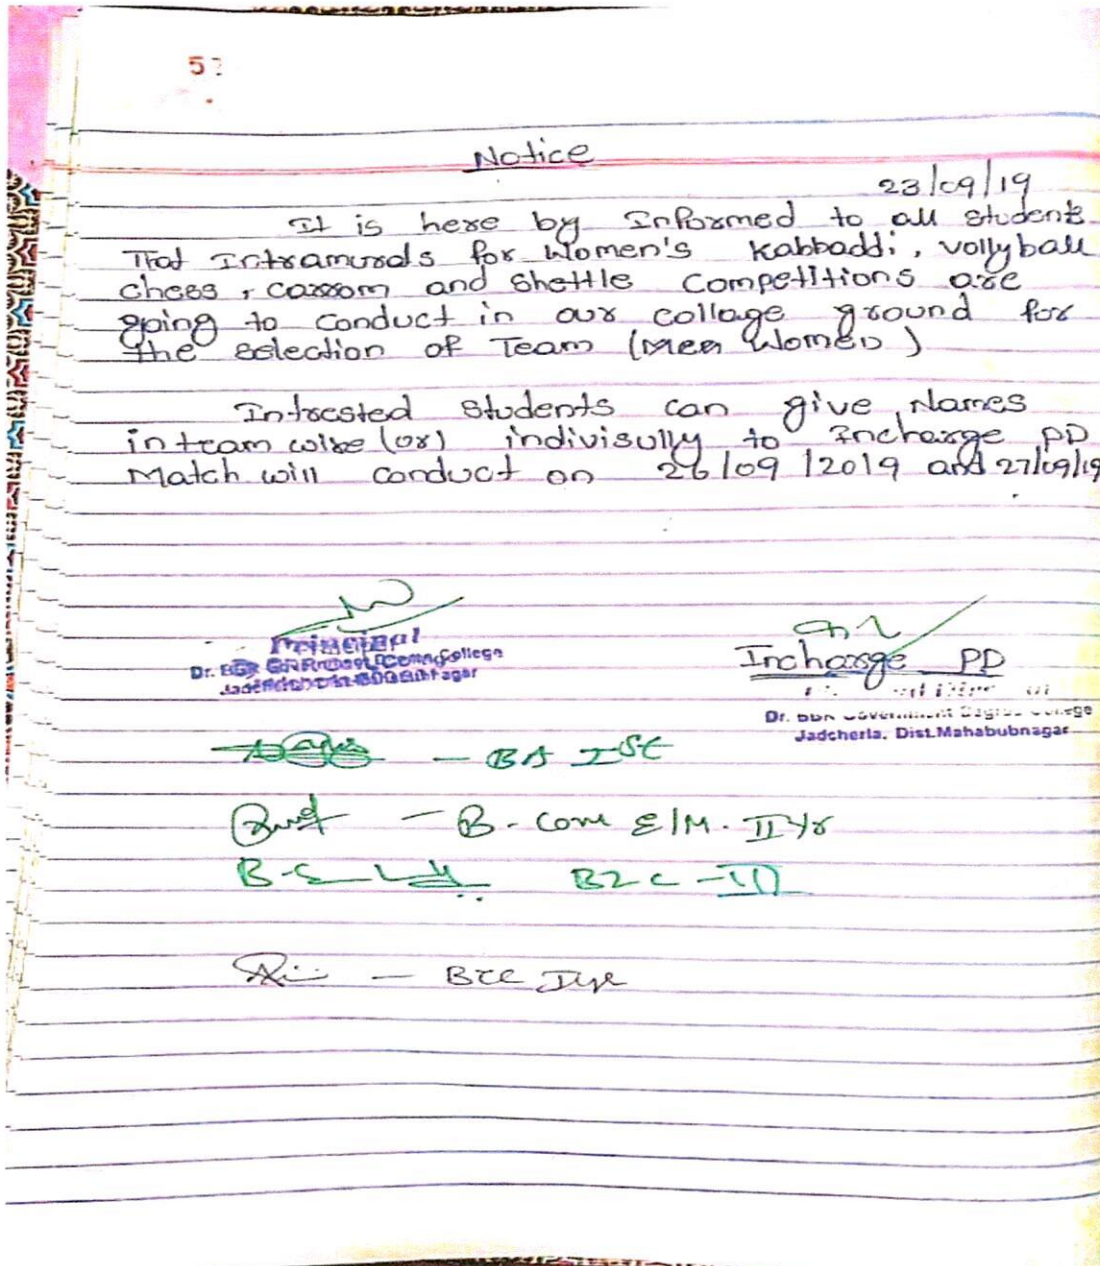 5
Notice
23/09/19
It is here by Informed to all students
That Intramurals for Women's Kabbaddi, vollyball
chess, carrom and Shettle Competitions are
going to conduct in our collage ground for
the selection of Team (Men Women)
Intrested Students can give Names
in team wise (or) indivisully to Incharge PD
Match will conduct on 26/09/2019 and 27/09/19
Principal
Dr.
Incharge PD
Dr. BBR Government Degree College
Jadcherla, Dist.Mahabubnagar
- BA Ist
- B.com E/M. II Yr
BZC - III
-